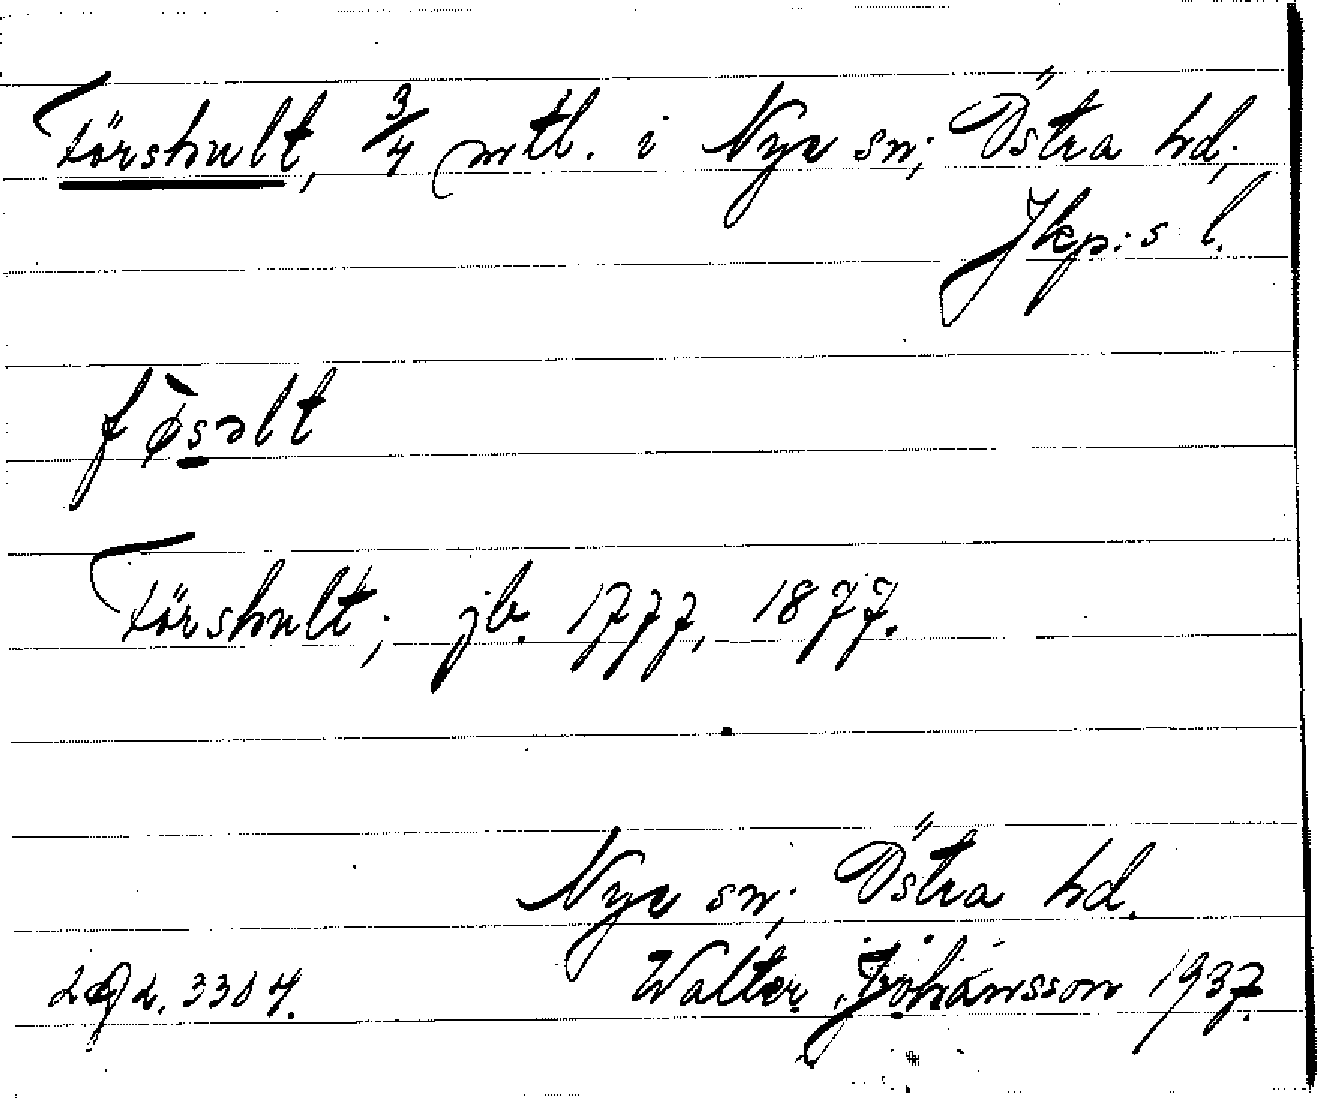 Förshult, 3/4 mtl. i Nye sn; Östra hd;
Jkp:s l.
fø̀səlt
Förshult; jb. 1777, 1877.
Nye sn; Östra hd.
Walter Johansson 1937.
3304.